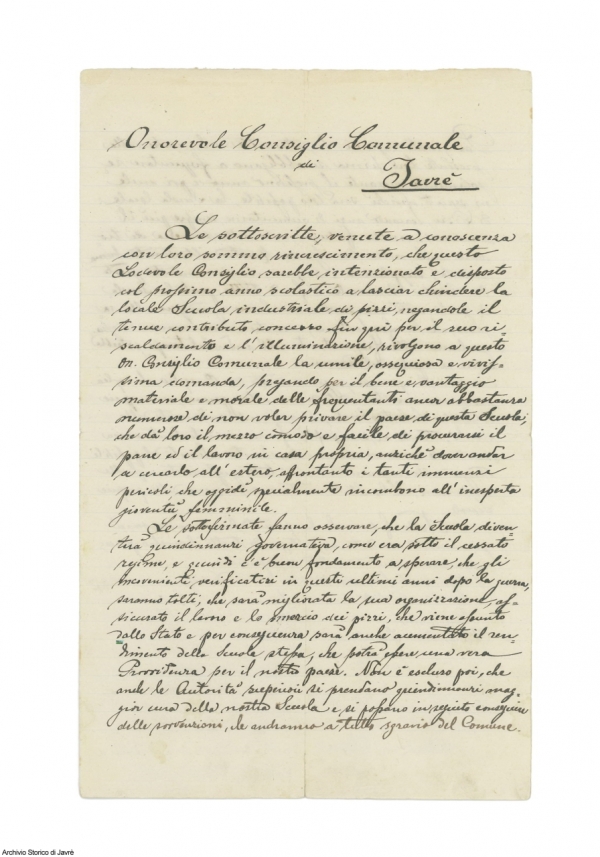 Onorevole Consiglio Comunale
di
Javrè
Le sottoscritte, venute a conoscenza
con loro sommo rincrescimento, che questo
Lodevole Consiglio sarebbe intenzionato e disposto
col prossimo anno scolastico a lasciar chiudere la
locale Scuola industriale di pizzi, negandole il
tenue contributo concesso fin qui per il suo ri-
scaldamento e l'illuminazione, rivolgono a questo
On. Consiglio Comunale la umile, ossequiosa e vivis-
sima domanda, pregando per il bene e vantaggio
materiale e morale delle frequentanti ancor abbastanza
numerose di non voler privare il paese di questa Scuola,
che dà loro il mezzo comodo e facile di procurarsi il
pane ed il lavoro in casa propria, anziché dover andar
a cercarlo all'estero, affrontanto i tanti immensi
pericoli che oggidì specialmente incombono all'inesperta
gioventù femminile.
Le sottofirmate fanno osservare, che la Scuola diven-
terà quindinnanzi governativa, come era sotto il cessato
regime, e quindi c'è buon fondamento a sperare, che gli
inconvenienti, verificatisi in questi ultimi anni dopo la guerra,
saranno tolti, che sarà migliorata la sua organizzazione, as-
sicurato il lavoro e lo smercio dei pizzi, che viene assunto
dallo Stato e per conseguenza sarà anche aumentato il ren-
dimento della Scuola stessa, che potrà essere una vera
Provvidenza per il nostro paese. Non è escluso poi, che
anche le Autorità superiori si prendano quindinnanzi mag-
gior cura della nostra Scuola e si possano in seguito conseguire
delle sovvenzioni, che andranno a tutto sgravio del Comune.
Archivio Storico di Javrè